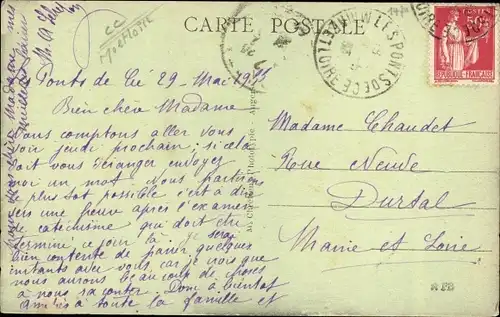 CARTE POSTALE
CC
Ponts de Cé 29 Mai 19
Bien chère Madame
Nous comptons aller vous
voir jeudi prochain ; si cela
doit vous déranger envoyez
moi un mot. Nous partirons
le plus tôt possible c'est à dire
vers une heure après l'examen
de catéchisme qui doit être
terminé ce jour là. Je serai
bien contente de passer quelques
instants avec vous, car je crois que
nous aurons beaucoup de choses
à nous raconter. Donc à bientôt
amitiés à toute la famille et
pour vous chère Madame mes
meilleurs baisers
50c
REPUBLIQUE FRANÇAISE
LES PONTS DE CE
Madame Chaudet
Rue Neuve
Durtal
Maine et Loire